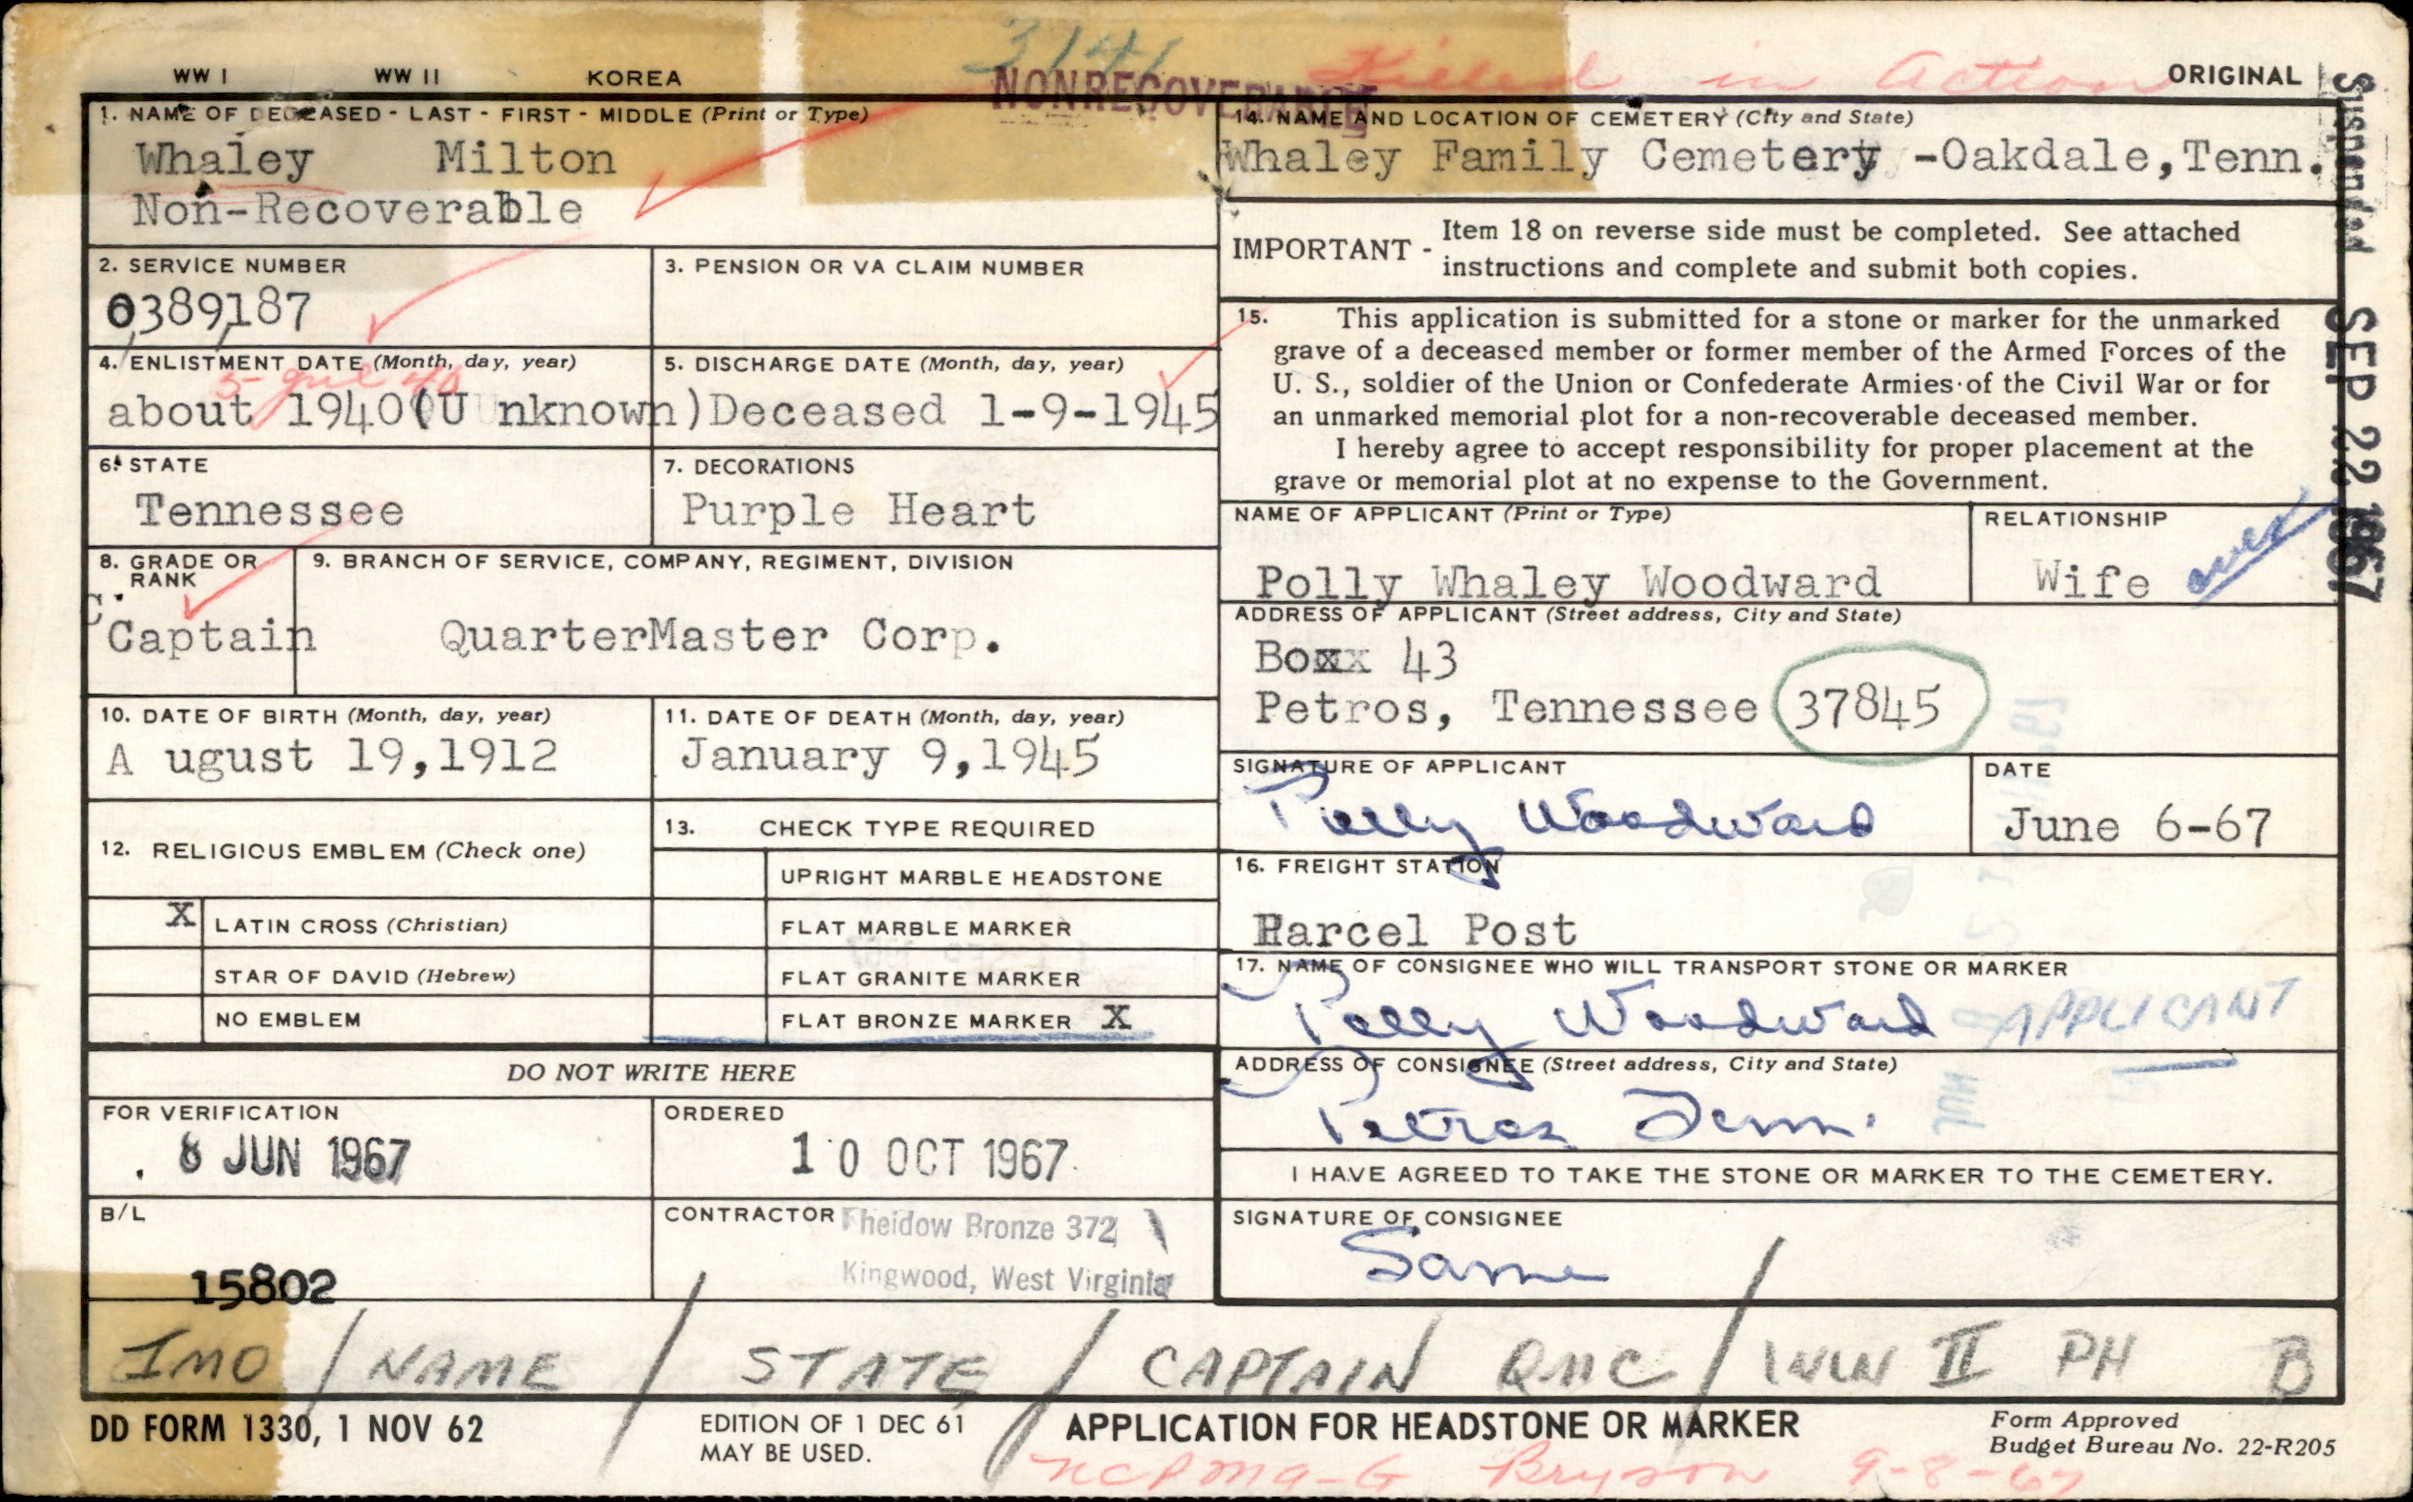 3141
Killed in Action
WW I WW II KOREA
NONRECOVERABLE
ORIGINAL
Suspended SEP 22 1967
1. NAME OF DECEASED - LAST - FIRST - MIDDLE (Print or Type)
Whaley Milton
Non-Recoverable
2. SERVICE NUMBER
0389187
3. PENSION OR VA CLAIM NUMBER
4. ENLISTMENT DATE (Month, day, year)
5 Jul 40
about 1940(U nknown)
5. DISCHARGE DATE (Month, day, year)
Deceased 1-9-1945
6. STATE
Tennessee
7. DECORATIONS
Purple Heart
8. GRADE OR RANK
Captain
9. BRANCH OF SERVICE, COMPANY, REGIMENT, DIVISION
QuarterMaster Corp.
10. DATE OF BIRTH (Month, day, year)
A ugust 19,1912
11. DATE OF DEATH (Month, day, year)
January 9,1945
12. RELIGIOUS EMBLEM (Check one)
X LATIN CROSS (Christian)
STAR OF DAVID (Hebrew)
NO EMBLEM
13. CHECK TYPE REQUIRED
UPRIGHT MARBLE HEADSTONE
FLAT MARBLE MARKER
FLAT GRANITE MARKER
FLAT BRONZE MARKER X
DO NOT WRITE HERE
FOR VERIFICATION
8 JUN 1967
ORDERED
10 OCT 1967
B/L
15802
CONTRACTOR
Sheidow Bronze 372
Kingwood, West Virginia
14. NAME AND LOCATION OF CEMETERY (City and State)
Whaley Family Cemetery -Oakdale,Tenn.
IMPORTANT - Item 18 on reverse side must be completed. See attached
instructions and complete and submit both copies.
15. This application is submitted for a stone or marker for the unmarked
grave of a deceased member or former member of the Armed Forces of the
U. S., soldier of the Union or Confederate Armies of the Civil War or for
an unmarked memorial plot for a non-recoverable deceased member.
I hereby agree to accept responsibility for proper placement at the
grave or memorial plot at no expense to the Government.
NAME OF APPLICANT (Print or Type)
Polly Whaley Woodward
RELATIONSHIP
Wife over
ADDRESS OF APPLICANT (Street address, City and State)
Boxx 43
Petros, Tennessee 37845
SIGNATURE OF APPLICANT
Polly Woodward
DATE
June 6-67
16. FREIGHT STATION
Parcel Post
17. NAME OF CONSIGNEE WHO WILL TRANSPORT STONE OR MARKER
Polly Woodward APPLICANT
ADDRESS OF CONSIGNEE (Street address, City and State)
Petros Tenn.
I HAVE AGREED TO TAKE THE STONE OR MARKER TO THE CEMETERY.
SIGNATURE OF CONSIGNEE
Same
IMO / NAME / STATE / CAPTAIN QMC / WW II PH B
DD FORM 1330, 1 NOV 62
EDITION OF 1 DEC 61
MAY BE USED.
APPLICATION FOR HEADSTONE OR MARKER
Form Approved
Budget Bureau No. 22-R205
Bryson 9-8-67